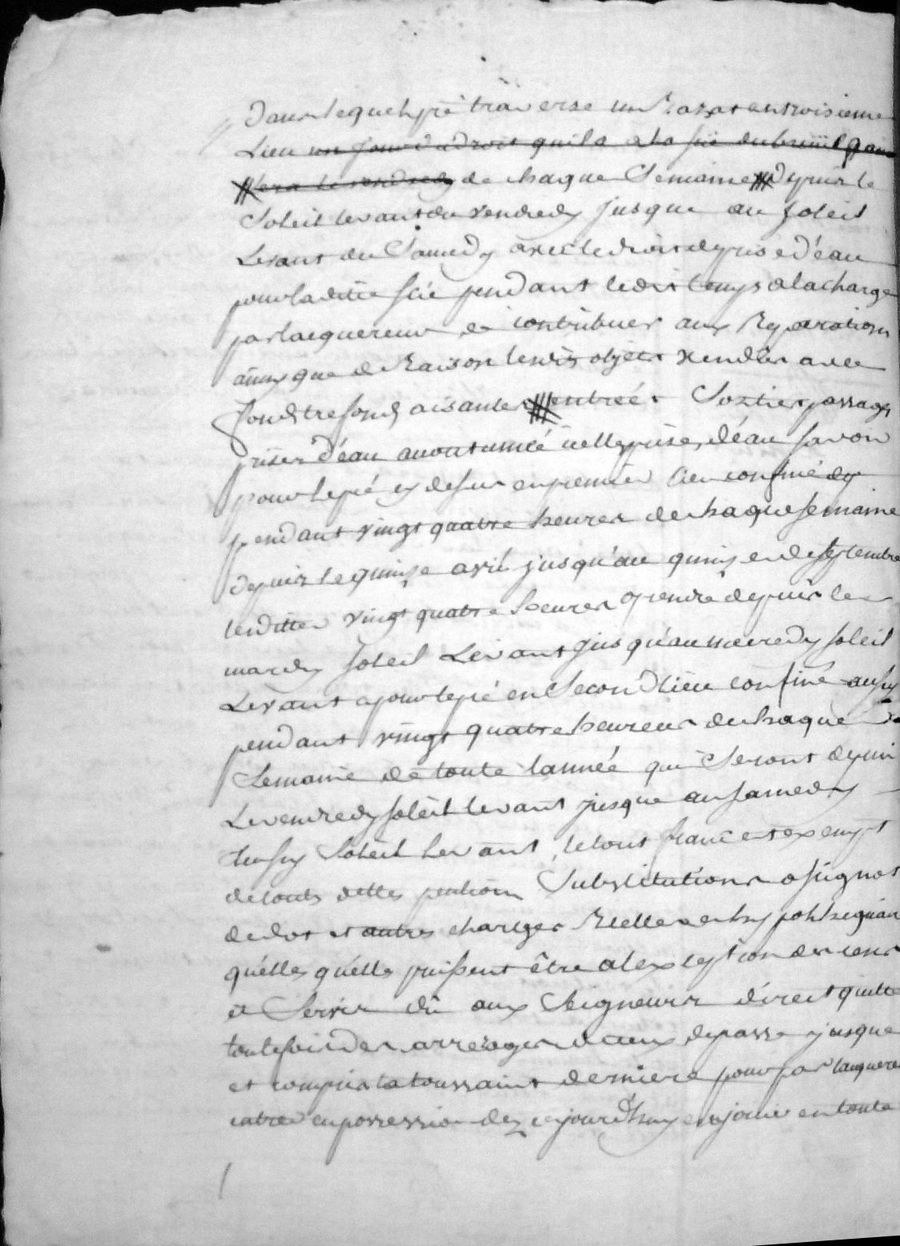 dans lequel pré traverse un Razat en troisieme
Lieu un jour du droit quil a a la sie du breuil qui
sera le vendredy de chaque Semaine depuis le
Soleil levant du vendredy jusque au soleil
Levant du Samedy avec le droit de prise d'eau
pour la ditte sçie pendant ledit temps a la charge
par lacquereur de contribuer aux Reparations
ainsy que de Raison lesdits objets vendus avec
fond tresfond aisances entrées Sorties passages
prises d'eau accoutumée icelles prises d'eau savoir
pour le pré cy dessus en premier lieu confiné de
pendant vingt quatre heures de chaque semaine
depuis le quinse avril jusqu'au quinse de septembre
lesdittes vingt quatre heures a prendre depuis le
mardy soleil Levant jusqu'au mecredy soleil
Levant & pour le pré en Second lieu confiné aussy
pendant vingt quatre heures de chaque
Semaine de toute lannée qui Seront depuis
Le vendredy soleil levant jusque au samedy
aussy Soleil Levant, le tout franc et exempt
de touts dettes pentions Substitutions assignat
de dot et autres charges Réelles et hypotheques
quélles qu'élles puissent être a lexception des cens
et Servis dû aux Seigneurs direct quitte
toutefois des arrerages d'iceux de passé jusque
et compris la toussaint derniere pour par lacquereur
entrer en possession dez ce jourd'huy en jouir en toute